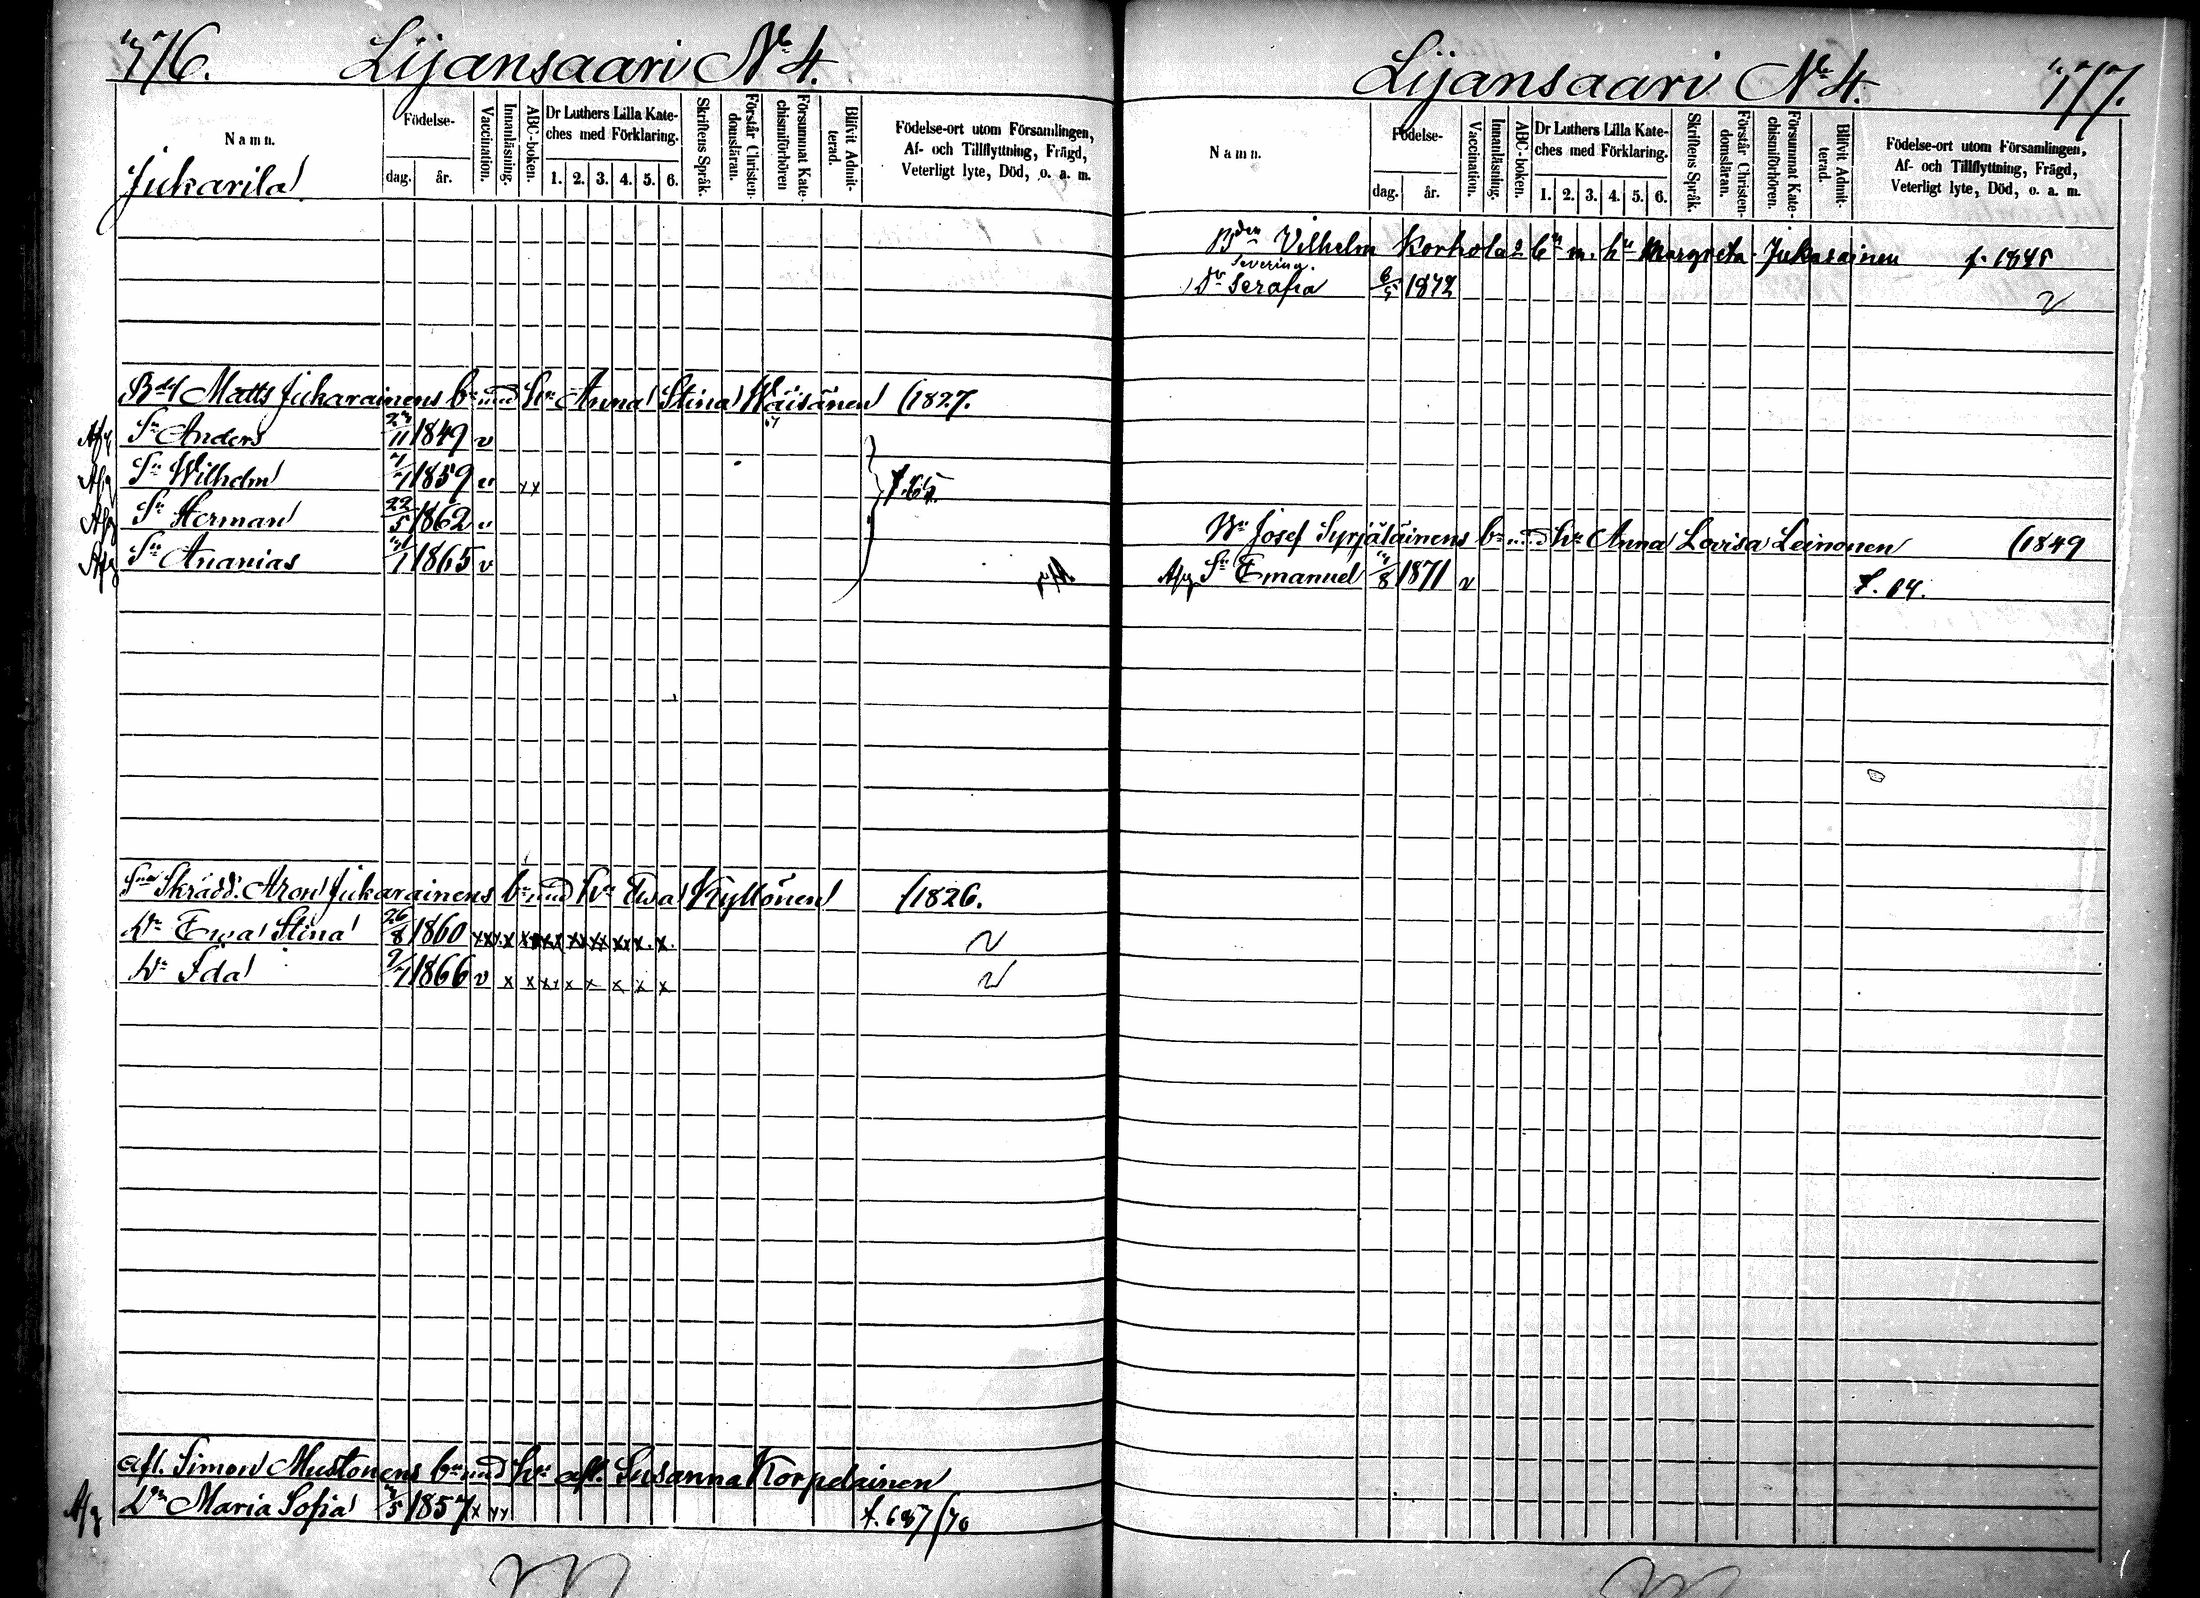 776. Lijansaari No 4.
Namn.
Födelse-
dag. år.
Vaccination.
Innanläsning.
ABC-boken.
Dr Luthers Lilla Kate-
ches med Förklaring.
1. 2. 3. 4. 5. 6.
Skriftens Språk.
Förstår Christen-
domsläran.
Försummat Kate-
chismiförhören
Blifvit Admit-
terad.
Födelse-ort utom Församlingen,
Af- och Tillflyttning, Frägd,
Veterligt lyte, Död, o. a. m.
Jukarila
Matts Jukarainens bn med hu Anna Stina Wäisänen (1827.
Afg Sn Anders 11 1849 v
Afg Sn Wilhelm 1859 v x x
Afg Sn Herman 22/5 1862 v
Afg Sn Ananias 1865 v
Skrädd. Aron Jukarainens bn med hu Ewa Kyllönen (1826.
Dr Ewa Stina 26/8 1860
Dr Ida 9/7 1866 v x x xx x x x x x
afl. Simon Mustonens bn med hu afl. Susanna Korpelainen
Afg Dr Maria Sofia 1857 x x x f. 687/70
Lijansaari No 4. 777.
Namn.
Födelse-
dag. år.
Vaccination.
Innanläsning.
ABC-boken.
Dr Luthers Lilla Kate-
ches med Förklaring.
1. 2. 3. 4. 5. 6.
Skriftens Språk.
Förstår Christen-
domsläran.
Försummat Kate-
chismiförhören.
Blifvit Admit-
terad.
Födelse-ort utom Församlingen,
Af- och Tillflyttning, Frägd,
Veterligt lyte, Död, o. a. m.
Bden Vilhelm Korhola bn m. hu Margreta Jukarainen f. 1845
Severing.
Dr Serafia 6/5 1872
Josef Syrjäläinens bn med hu Anna Lovisa Leinonen (1849
Afg Sn Emanuel 1871 v f. 64.